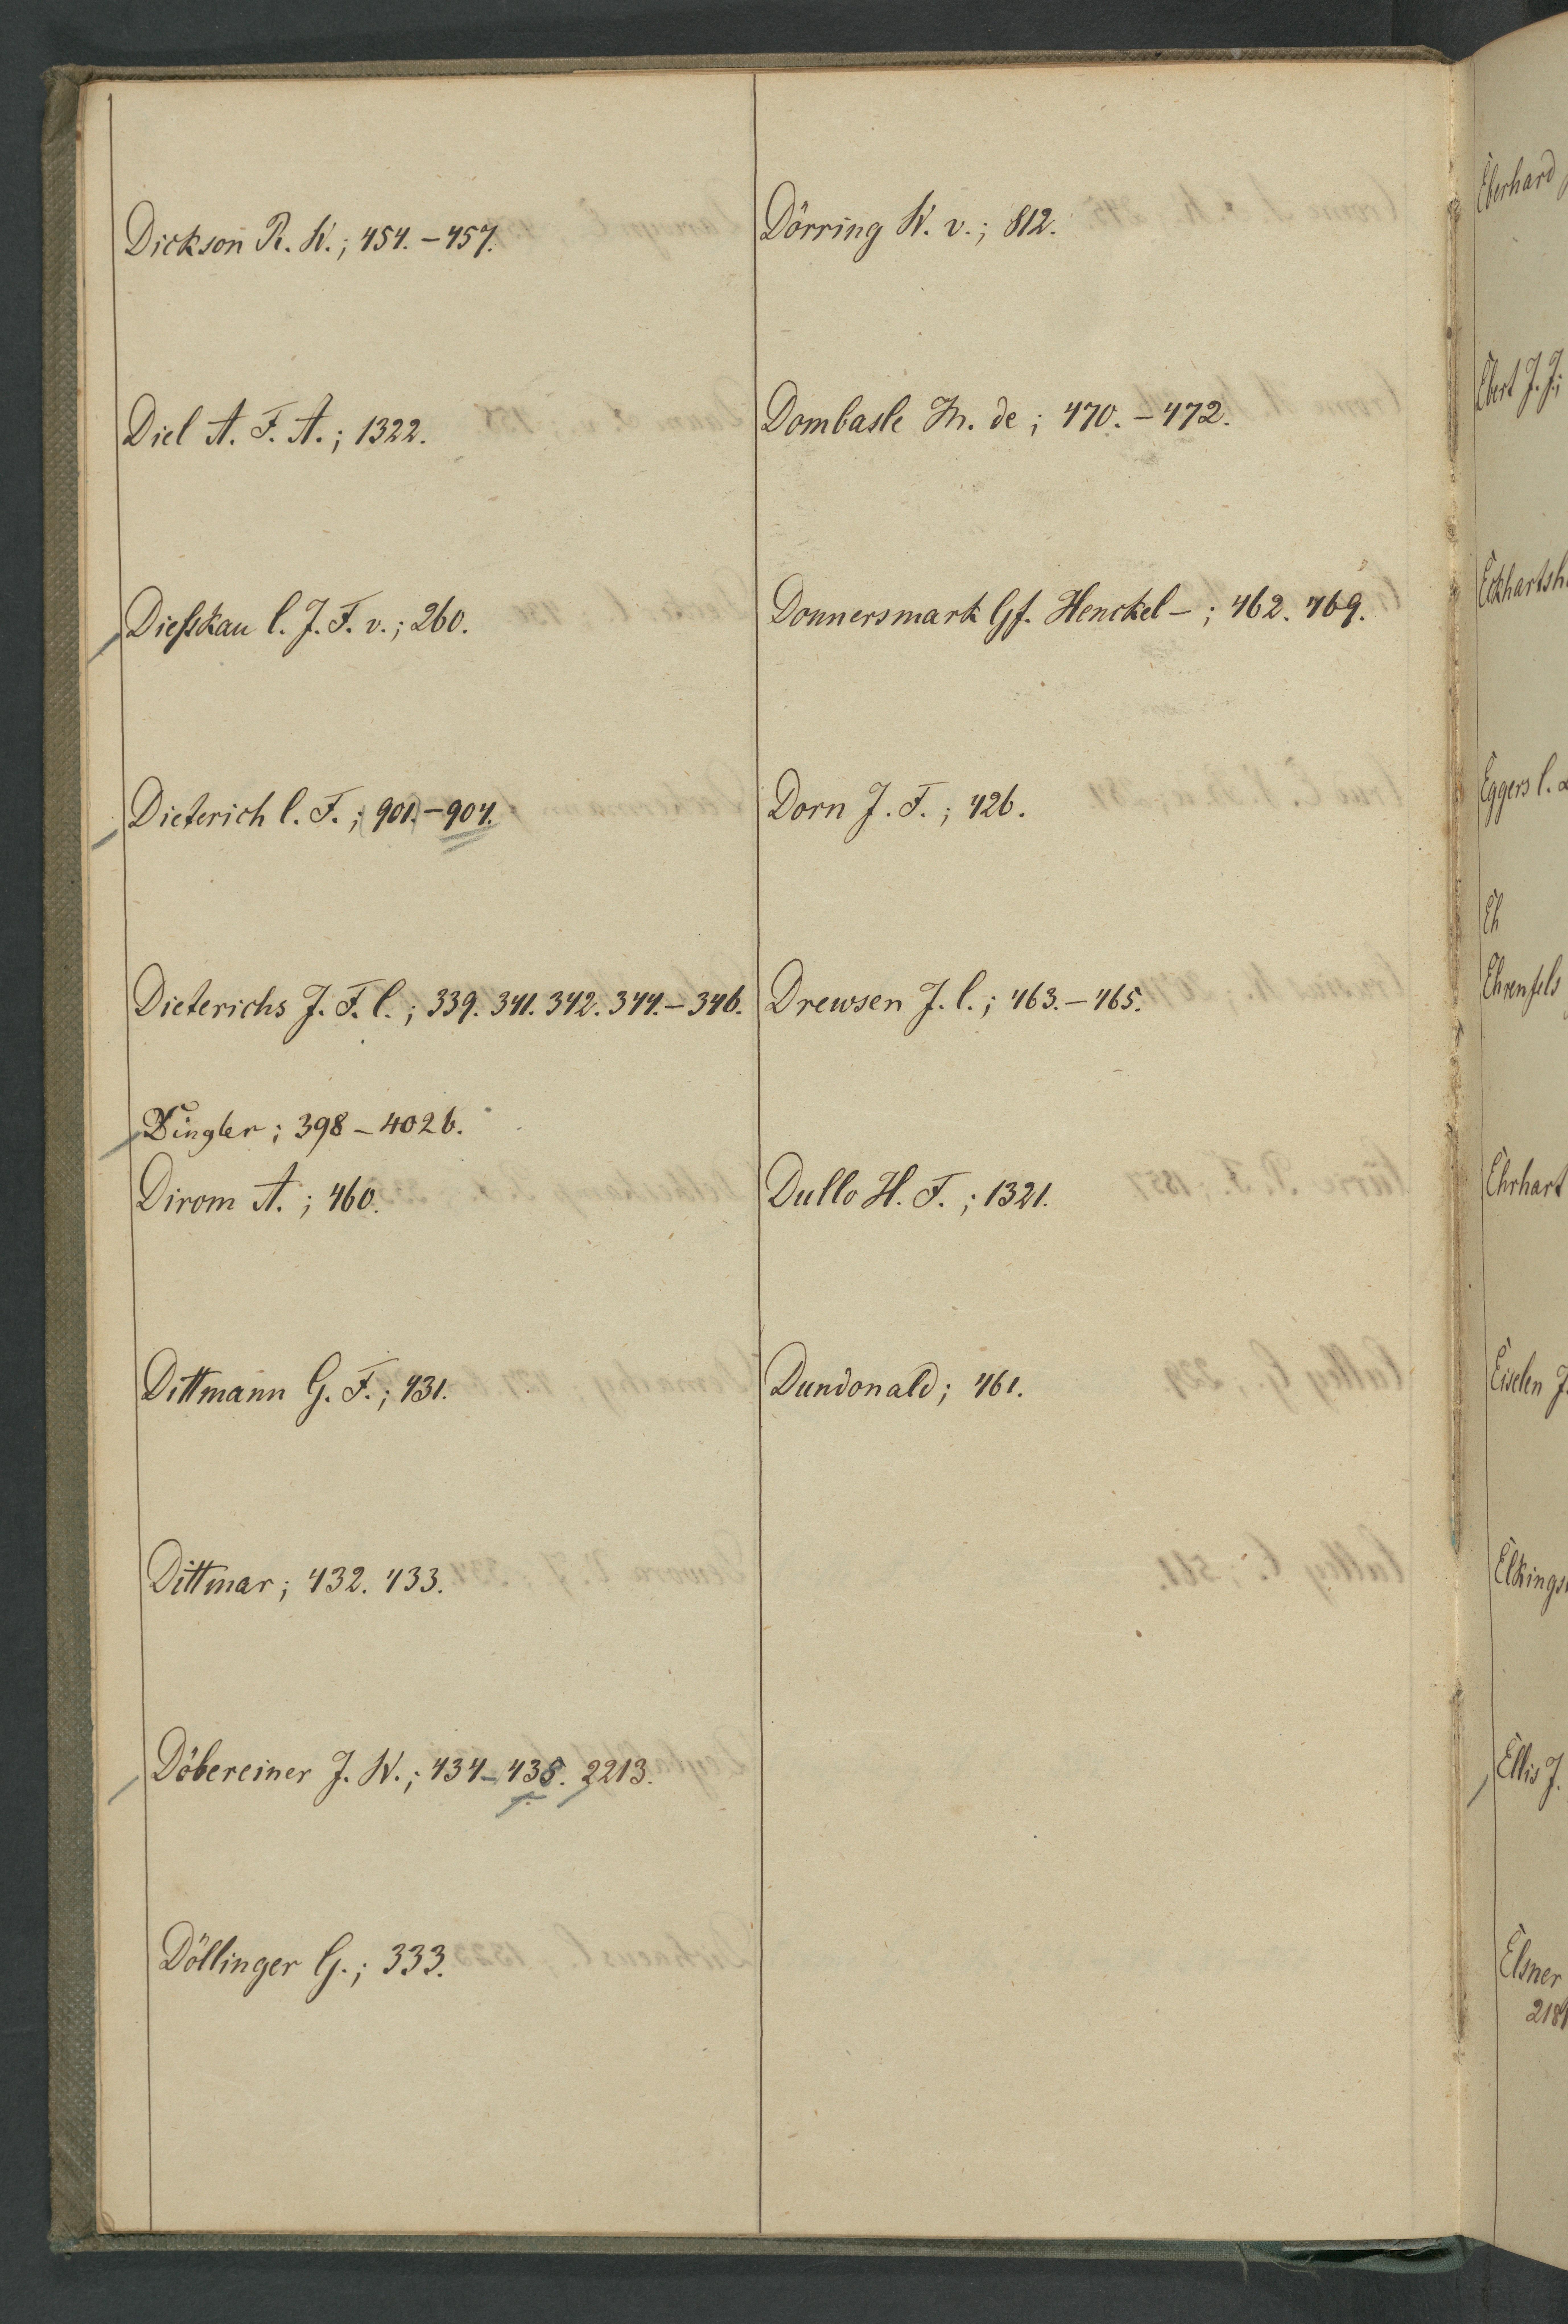 Dickson R. W.; 454. – 457.
Diel A. F. A.; 1322.
Dießkau C. J. F. v.; 260.
Dieterich C. F.; 901. – 904.
Dieterichs J. F. C.; 339. 341. 342. 344. – 346.
Dingler; 398 – 402 b.
Dirom A.; 460.
Dittmann G. F.; 431.
Dittmar; 432. 433.
Döbereiner J. W.; 434 – 438. 2213.
Döllinger G.; 333.
Dörring W. v.; 812.
Dombasle M. de; 470. – 472.
Donnersmark Gf. Henckel –; 462. 469.
Dorn J. F.; 426.
Drewsen J. C.; 463. – 465.
Dullo H. F.; 1321.
Dundonald; 461.
Eberhard
Ebert J. J.;
Eckhartsh
Eggers C.
Eh
Ehrenfels
Ehrhart
Eiselen J.
Elkings
Ellis J.
Elsner
218